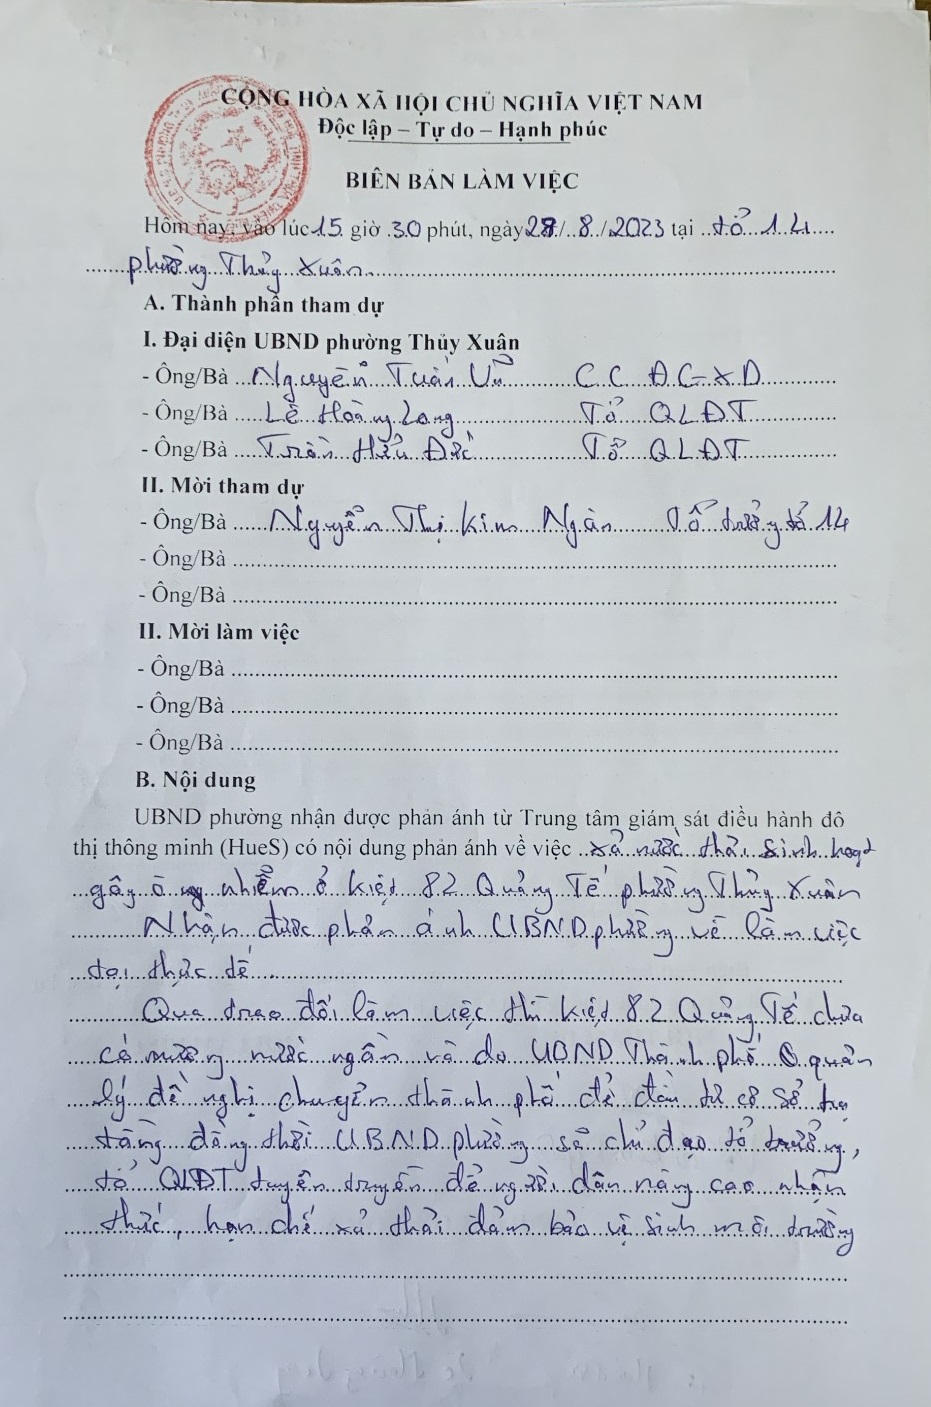 CỘNG HÒA XÃ HỘI CHỦ NGHĨA VIỆT NAM
Độc lập – Tự do – Hạnh phúc
BIÊN BẢN LÀM VIỆC
Hôm nay, vào lúc 15 giờ 30 phút, ngày /8/2023 tại tổ 14
phường Thủy Xuân
A. Thành phần tham dự
I. Đại diện UBND phường Thủy Xuân
- Ông/Bà Nguyễn Tuấn Vũ CC ĐC-XD
- Ông/Bà Lê Hoàng Long Tổ QLĐT
- Ông/Bà Trần Hữu Đức Tổ QLĐT
II. Mời tham dự
- Ông/Bà Nguyễn Thị Kim Ngân Tổ trưởng tổ 14
- Ông/Bà
- Ông/Bà
II. Mời làm việc
- Ông/Bà
- Ông/Bà
- Ông/Bà
B. Nội dung
UBND phường nhận được phản ánh từ Trung tâm giám sát điều hành đô
thị thông minh (HueS) có nội dung phản ánh về việc xả nước thải sinh hoạt
gây ô nhiễm ở kiệt 82 Quảng Tế phường Thủy Xuân
Nhận được phản ánh UBND phường về làm việc
tại thực tế
Qua trao đổi làm việc thì kiệt 82 Quảng Tế chưa
có mương nước ngần và do UBND Thành phố quản
lý đề nghị chuyển thành phố để đầu tư cơ sở hạ
tầng đồng thời UBND phường sẽ chỉ đạo tổ trưởng,
tổ QLĐT tuyên truyền để người dân nâng cao nhận
thức, hạn chế xả thải đảm bảo vệ sinh môi trường